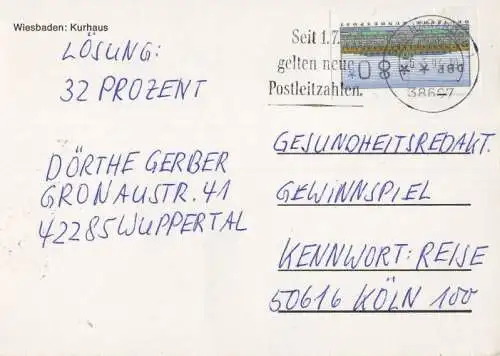 Wiesbaden: Kurhaus
LÖSUNG:
32 PROZENT
DÖRTHE GERBER
GRONAUSTR. 41
42285 WUPPERTAL
Seit 1.7.
gelten neue
Postleitzahlen.
DEUTSCHE BUNDESPOST
080
38697
GESUNDHEITSREDAKT.
GEWINNSPIEL
KENNWORT: REISE
50616 KÖLN 100